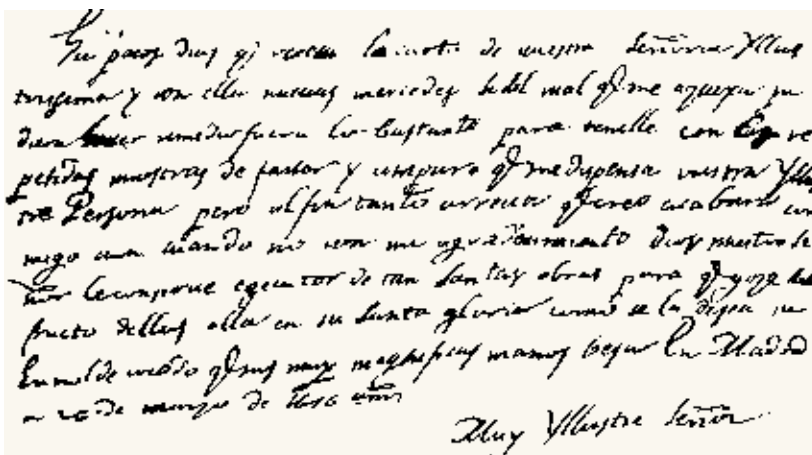 Ha pocos dias q̃ receui la carta de vuestra señoria Yllus
trissima y con ella nueuas mercedes si del mal q̃ me aquexa pu
diera hauer remedio fuera lo bastante para tenelle con re
petidas muestras de fauor y amparo q̃ me dispensa vuestra Yllus
tre Persona pero al fin tanto arrecia q̃ creo acabara con
migo aun cuando no con mi agradecimiento dios nuestro se
ñor le conserue egecutor de tan santas obras para q̃ goze del
fructo dellas alla en su santa gloria como se la desea su
humilde criado q̃ sus muy magnificas manos besa En Madrid
a 26 de marzo de años
Muy Yllustre Señor